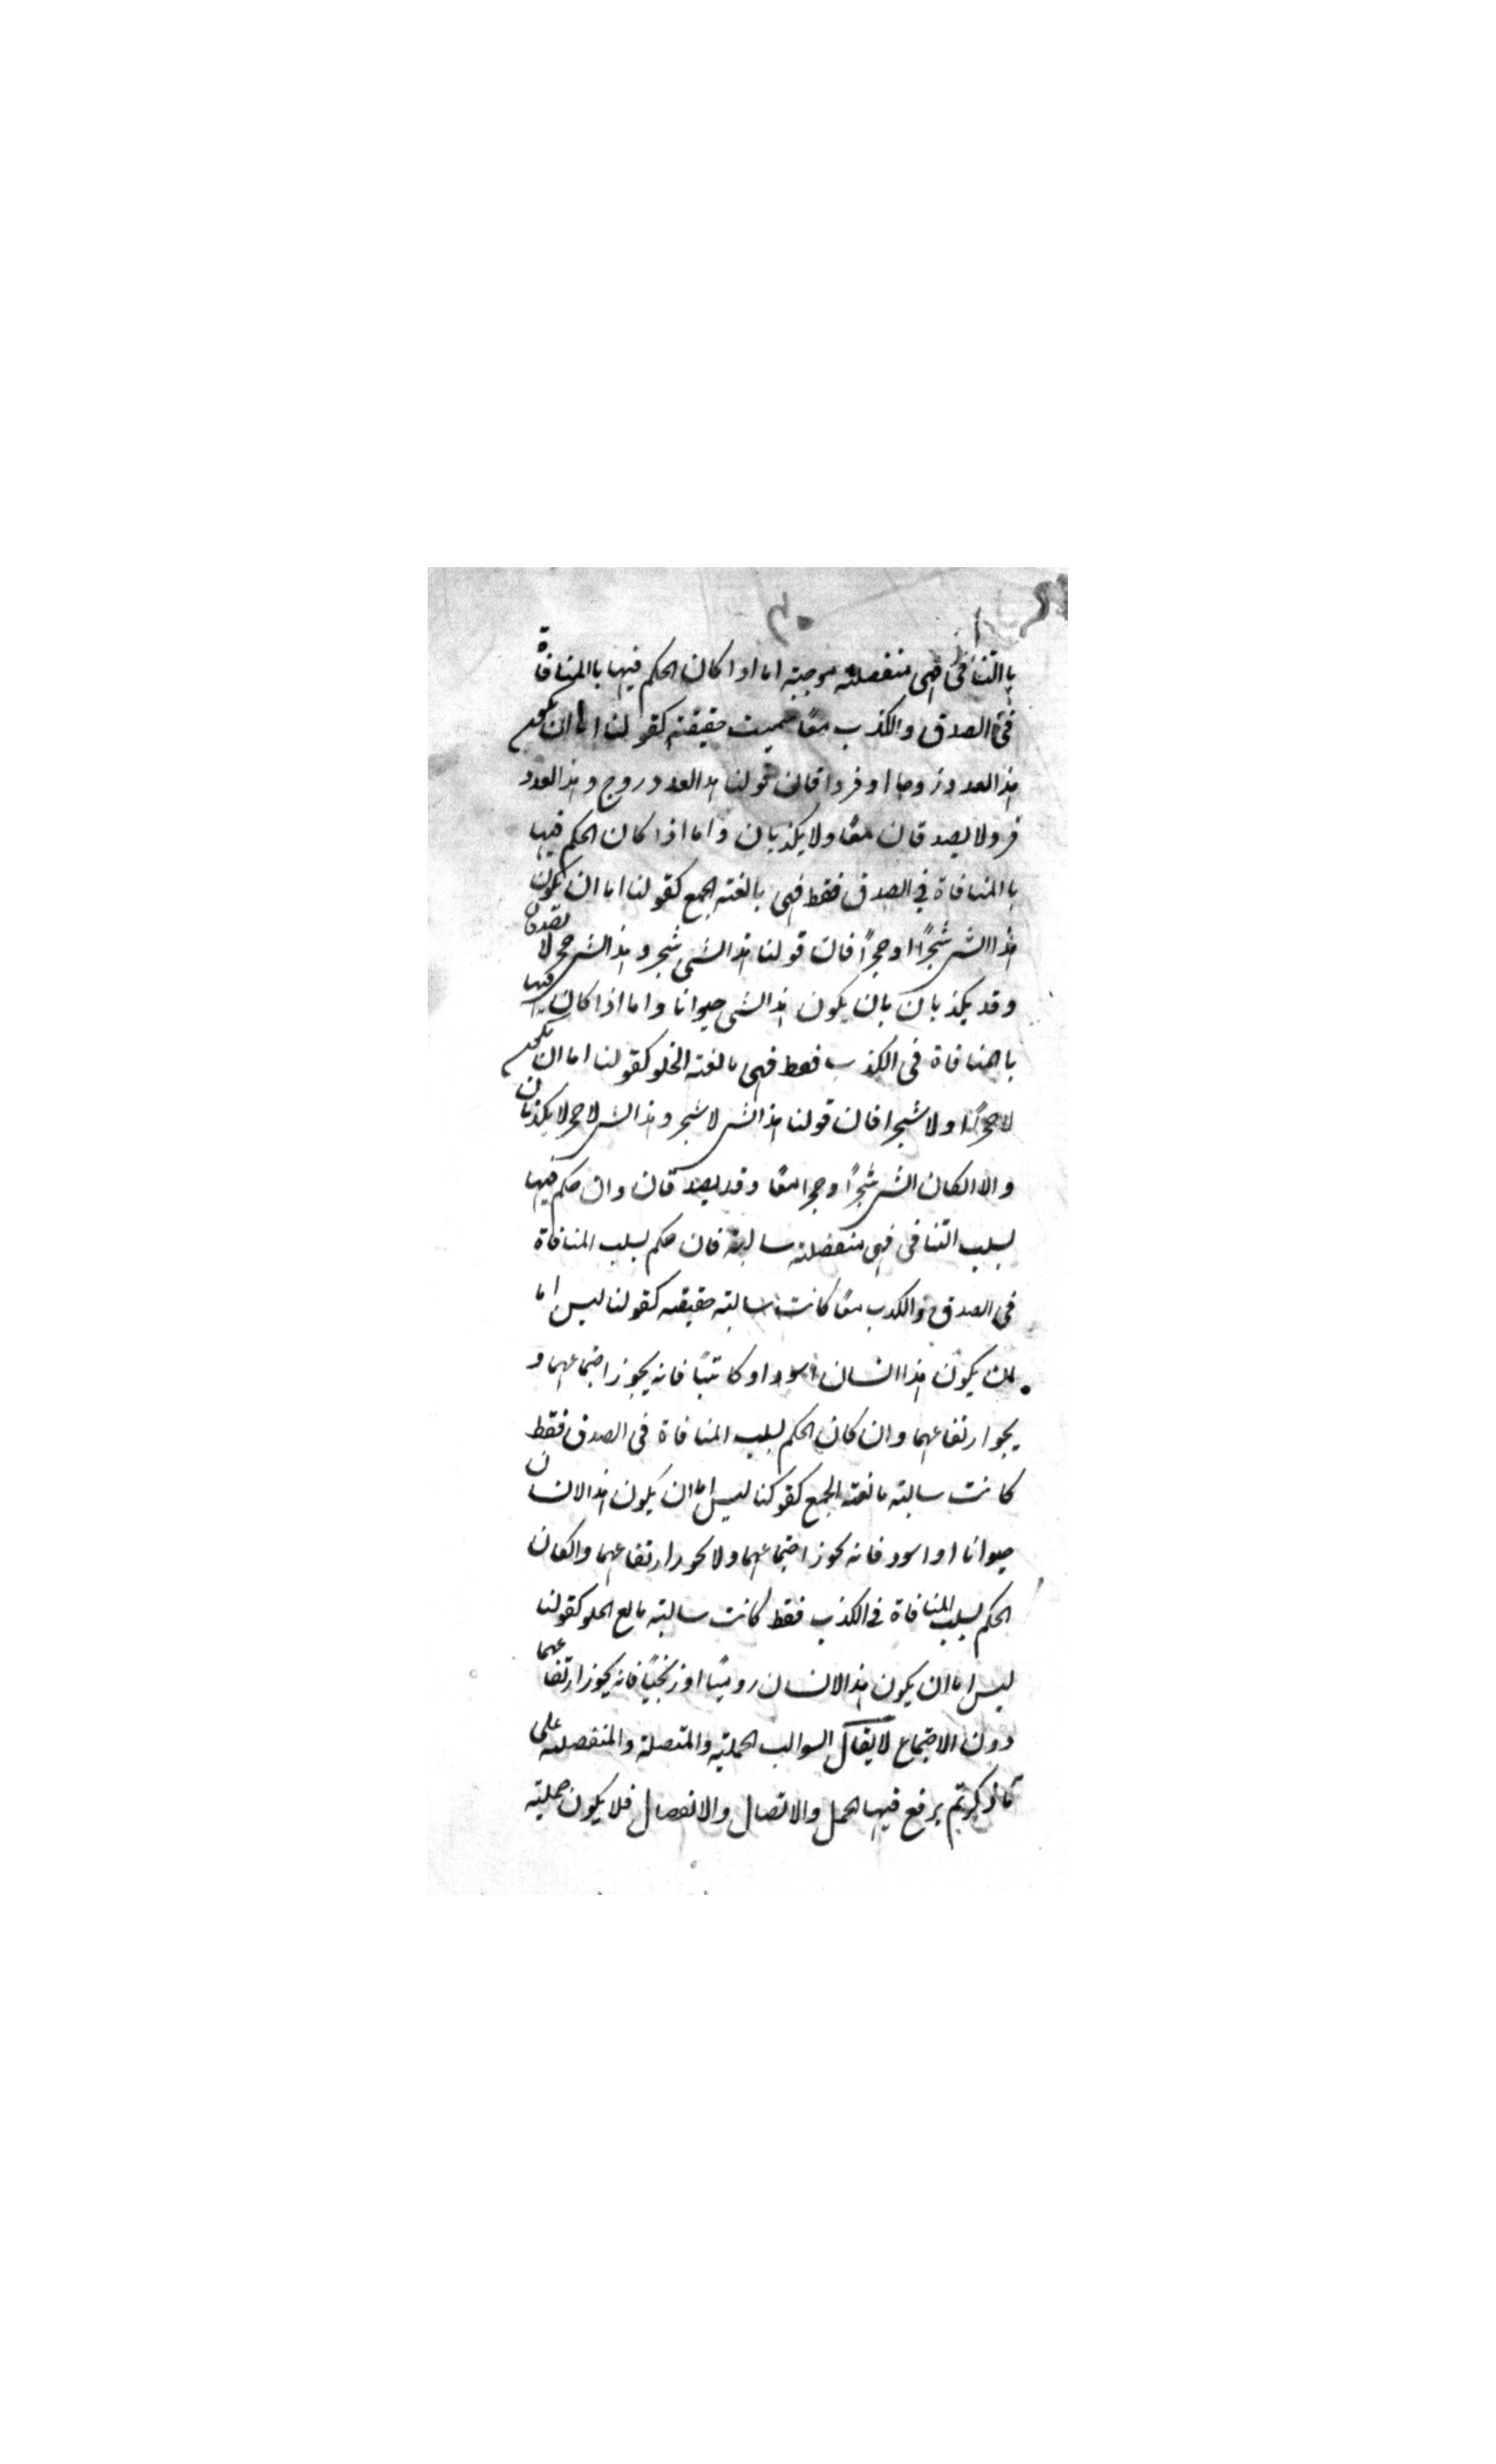 باالتنافى فهى منفصلته موجبته اما اذا كان الحكم فيها باالمنافاة
فى الصدق والكذب معًا سميت حقيقته كقولنا اما ان يكون
هذا العدد زوجا او فردا فان قولنا هذا العدد زوج وهذا العدد
فرد لا يصدقان معًا ولا يكذبان واما اذا كان الحكم فيها
باالمنافاة فى الصدق فقط فهى مانعته الجمع كقولنا اما ان يكون
هذا الشى شجرًا او حجرًا فان قولنا هذا الشى شجر وهذا الشى حجر لا يصدقان
وقد يكذبان بان يكون هذا الشى حيوانا واما اذا كان فيها
باالمنافاة فى الكذب فقط فهى مانعته الخلو كقولنا اما ان يكون
لا حجرًا او لا شجرا فان قولنا هذا الشى لا شجر وهذا الشى لا حجر لا يكذبان
والا لكان الشى شجرًا وحجرا معًا وقد يصدقان وان حكم فيها
بسلب التنافى فهى منفصلته سالبته فان حكم بسلب المنافاة
فى الصدق والكذب معًا كانت سالبته حقيقته كقولنا ليس اما
ان يكون هذا النسان اسود او كاتبًا فانه يجوز اجتماعهما و
يجوا رتفاعهما وان كان الحكم بسلب المنافاة فى الصدق فقط
كانت سالبته مانعته الجمع كقوكنا ليس اما ان يكون هذا الانسان
حيوانا او اسود فانه يجوز اجتماعهما ولا يجوز ارتفاعهما وانكان
الحكم بسلب المنافاة فى الكذب فقط كانت سالبته مانع الخلو كقولنا
ليس اما ان يكون هذا الانسان روميًا او زنجيًا فانه يجوز ارتفاعهما
دون الاجتماع لا يقال السوالب الحمليته والمتصلة والمنفصلته على
ما ذكرتم يرفع فيها الحمل والاتصال والانفصال فلا يكون حمليته